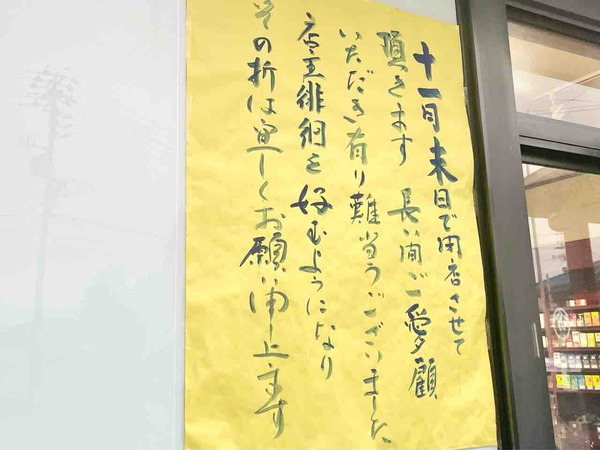 十一月末日で閉店させて
頂きます 長い間ご愛顧
いただき有り難当うございました
店主徘徊を好むようになり
その折は宜しくお願い申し上ます